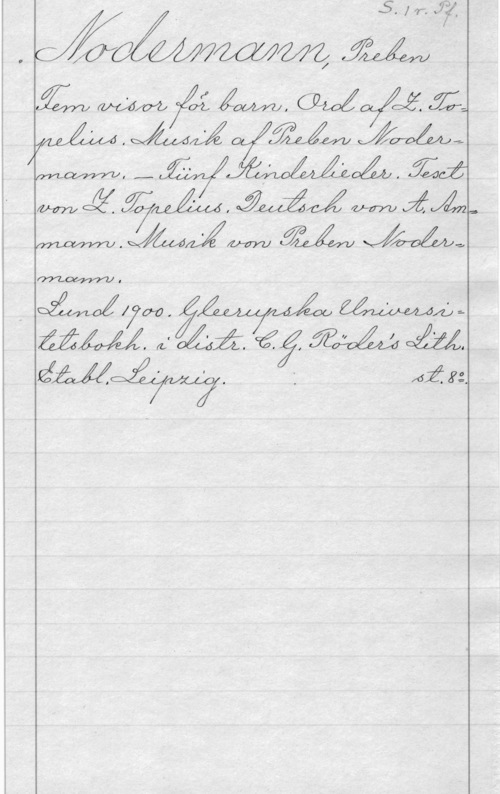 S. 1 r. Pf.
Nodermann, Preben
Fem visor för barn. Ord af Z. To=
pelius. Musik af Preben Noder=
mann. — Fünf Kinderlieder. Text
von Z. Topelius. Deutsch von A. Am=
mann. Musik von Preben Noder=
mann.
Lund 1900. Gleerupska Universi=
tetsbokh. i distr. C. G. Röder's Lith.
Etabl. Leipzig. st. 8º.